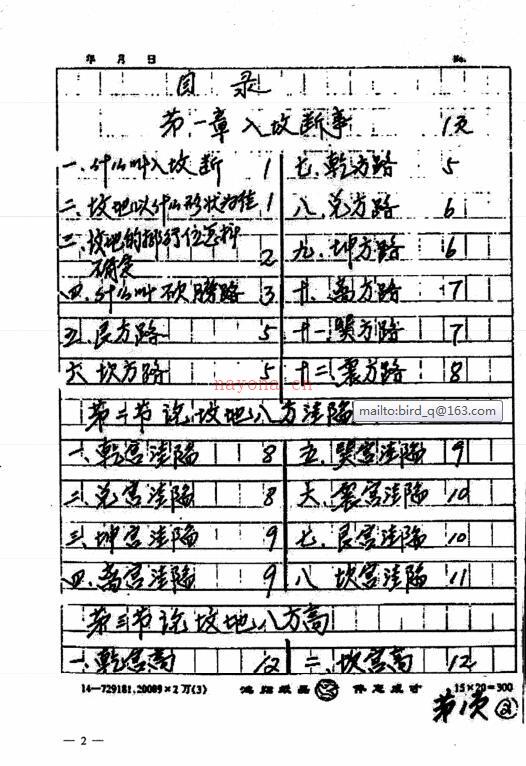 年 月 日 No.
目 录
第一章入坟断事 1页
一、什么叫入坟断 1 七、乾方路 5
二、坟地以什么形状为佳 1 八、兑方路 6
三、坟地的排行位怎样确定 2 九、坤方路 6
四、什么叫砍膀路 3 十、离方路 7
五、艮方路 5 十一、巽方路 7
六 坎方路 5 十二、震方路 8
nayona.cn
mailto:bird_q@163.com
第二节说坟地八方洼陷
一、乾宫洼陷 8 五、巽宫洼陷 9
二、兑宫洼陷 8 六、震宫洼陷 10
三、坤宫洼陷 9 七、艮宫洼陷 10
四、离宫洼陷 9 八 坎宫洼陷 11
第三节说坟地八方高
一、乾宫高 12 二、坎宫高 12
14—729181.20089×2万(3) 15×20=300
第1页 2
— 2 —